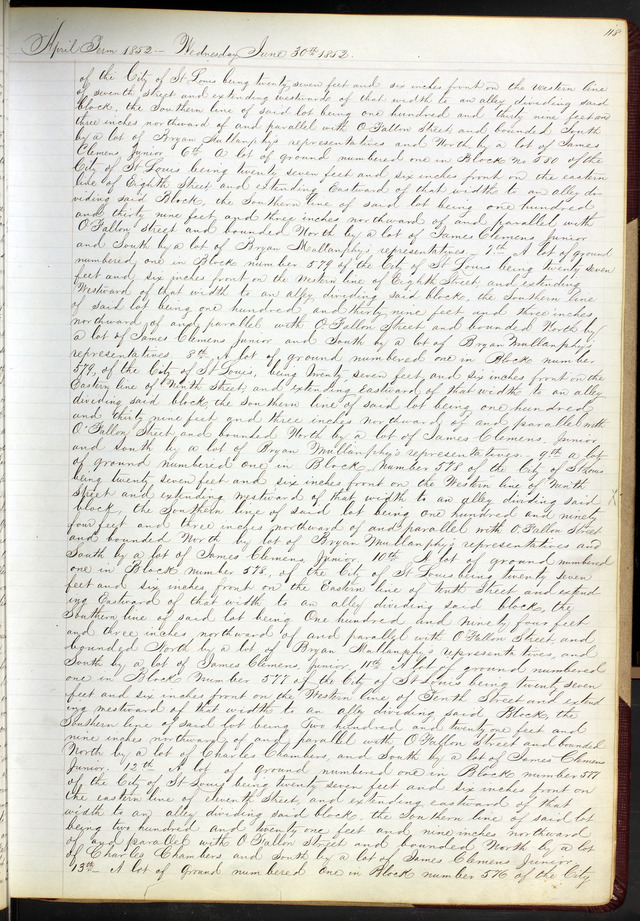 118
April Term 1852 — Wednesday June 30th 1852.
of the City of St Louis being twenty seven feet and six inches front on the western line
of seventh Street and extending westward of that width to an alley dividing said
block, the Southern line of said lot being one hundred and thirty nine feet and
three inches northward of and parallel with O'Fallon Street and bounded South
by a lot of Bryan Mullanphy's representatives and North by a lot of James
Clemens Junior 6th A lot of ground numbered one in Block No 580 of the
City of St Louis being twenty seven feet and six inches front on the eastern
line of Eighth Street and extending Eastward of that width to an alley di-
viding said Block, the Southern line of said lot being one hundred
and thirty nine feet and three inches northward of and parallel with
O'Fallon Street and bounded North by a lot of James Clemens Junior
and South by a lot of Bryan Mullanphy's representatives. 7th A lot of ground
numbered one in Block number 579 of the City of St Louis being twenty seven
feet and six inches front on the Western line of Eighth Street and extending
Westward of that width to an alley dividing said block, the Southern line
of said lot being one hundred and thirty nine feet and three inches
northward of and parallel with O'Fallon Street and bounded North by
a lot of James Clemens Junior and South by a lot of Bryan Mullanphy's
representatives. 8th A lot of ground numbered one in Block number
579, of the City of St Louis, being twenty seven feet and six inches front on the
Eastern line of Ninth Street and extending eastward of that width to an alley
dividing said block, the Southern line of said lot being one hundred
and thirty nine feet and three inches northward of and parallel with
O'Fallon Street and bounded North by a lot of James Clemens Junior
and South by a lot of Bryan Mullanphy's representatives. 9th a lot
of ground numbered one in Block number 578 of the City of St Louis
being twenty seven feet and six inches front on the Western line of Ninth
Street and extending westward of that width to an alley dividing said X
block, the Southern line of said lot being one hundred and ninety
four feet and three inches northward of and parallel with O'Fallon Street
and bounded North by lot of Bryan Mullanphy's representatives and
South by a lot of James Clemens Junior 10th A lot of ground numbered
one in Block number 578, of the City of St Louis being twenty seven
feet and six inches front on the Eastern line of tenth Street and extend
ing Eastward of that width to an alley dividing said block, the
Southern line of said lot being One hundred and ninety four feet
and three inches northward of and parallel with O'Fallon Street and
bounded North by a lot of Bryan Mullanphy's representatives, and
South by a lot of James Clemens Junior 11th A lot of ground numbered
one in Block Number 577 of the City of St Louis being twenty seven
feet and six inches front on the Western line of Tenth Street and extend
ing westward of that width to an alley dividing said Block, the
Southern line of said lot being Two hundred and twenty one feet and
nine inches northward of and parallel with O'Fallon Street and bounded
North by a lot of Charles Chambers, and South by a lot of James Clemens
Junior. 12th A lot of ground numbered one in Block number 577
of the City of St Louis being twenty seven feet and six inches front on
the eastern line of eleventh Street, and extending eastward of that
width to an alley dividing said block, the Southern line of said lot
being two hundred and twenty one feet and nine inches northward
of and parallel with O'Fallon Street and bounded North by a lot
of Charles Chambers, and South by a lot of James Clemens Junior
13th A lot of ground numbered one in Block number 576 of the City